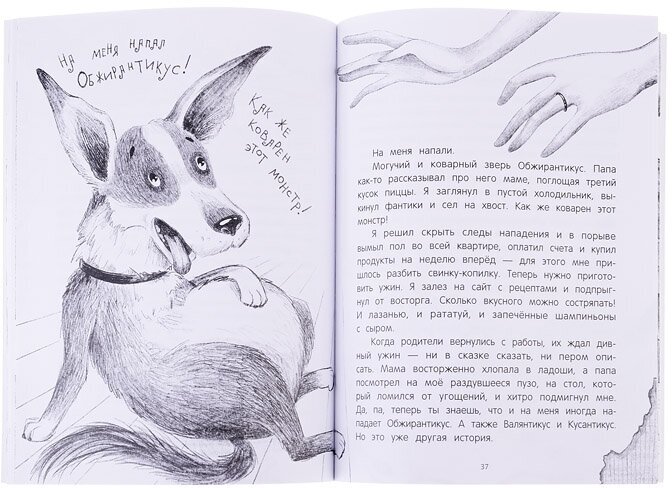 На меня напал
Обжирантикус!
Как же
коварен
этот монстр!
На меня напали.
Могучий и коварный зверь Обжирантикус. Папа
как-то рассказывал про него маме, поглощая третий
кусок пиццы. Я заглянул в пустой холодильник, вы-
кинул фантики и сел на хвост. Как же коварен этот
монстр!
Я решил скрыть следы нападения и в порыве
вымыл пол во всей квартире, оплатил счета и купил
продукты на неделю вперёд — для этого мне при-
шлось разбить свинку-копилку. Теперь нужно пригото-
вить ужин. Я залез на сайт с рецептами и подпрыг-
нул от восторга. Сколько вкусного можно состряпать!
И лазанью, и рататуй, и запечённые шампиньоны
с сыром.
Когда родители вернулись с работы, их ждал див-
ный ужин — ни в сказке сказать, ни пером опи-
сать. Мама восторженно хлопала в ладоши, а папа
посмотрел на моё раздувшееся пузо, на стол, кото-
рый ломился от угощений, и хитро подмигнул мне.
Да, па, теперь ты знаешь, что и на меня иногда на-
падает Обжирантикус. А также Валянтикус и Кусантикус.
Но это уже другая история.
37